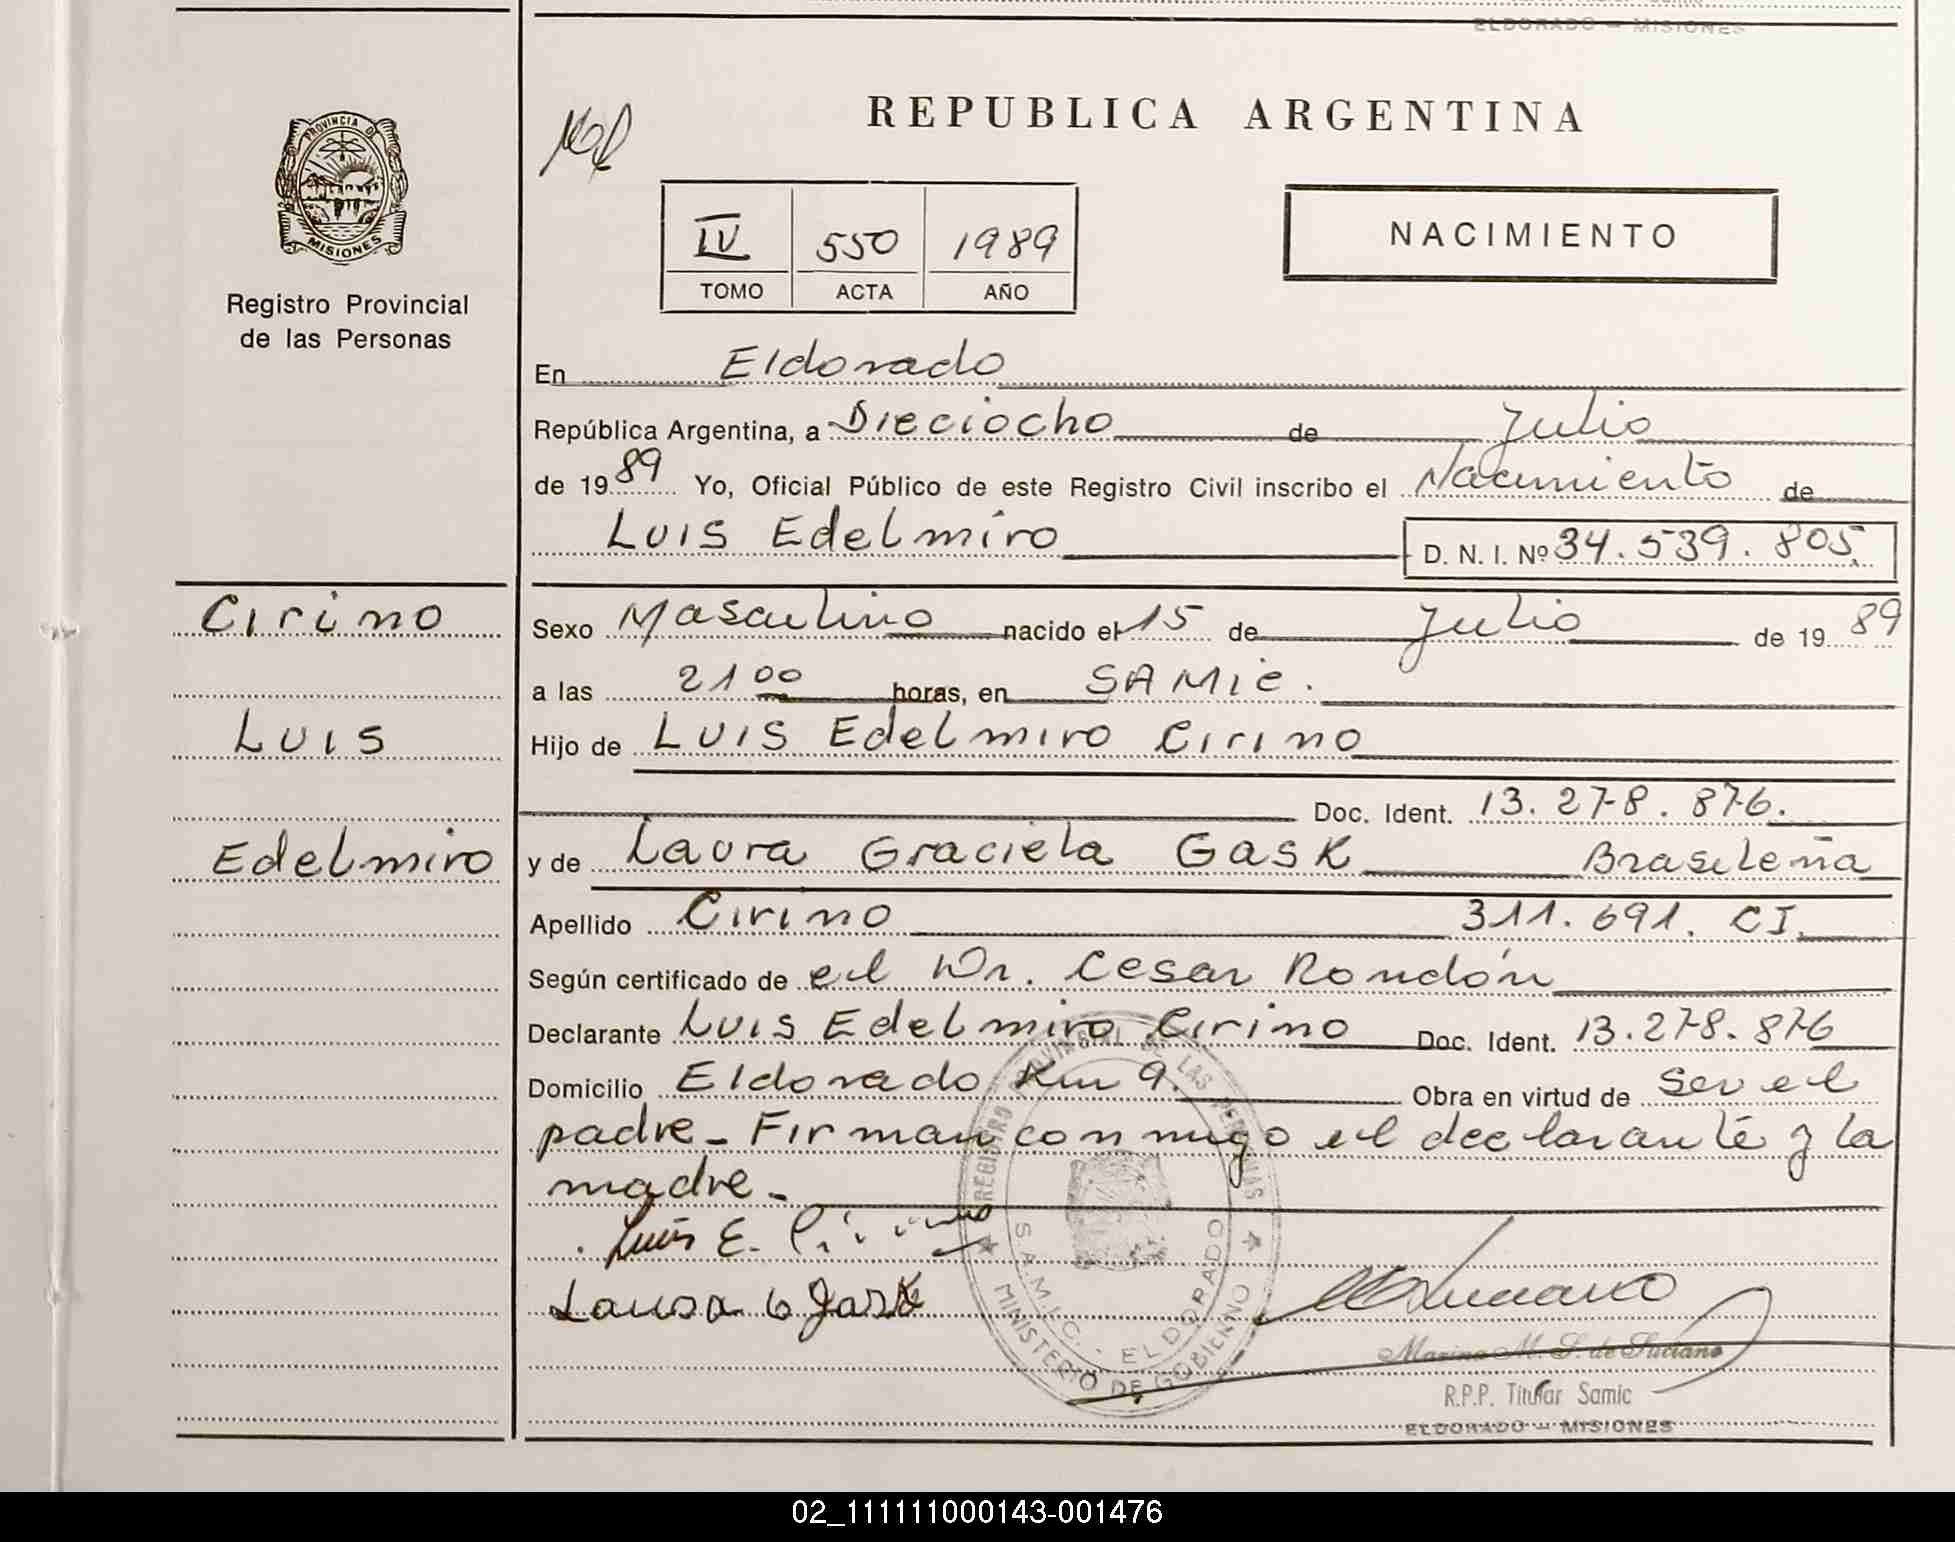 ELDORADO — MISIONES
REPUBLICA ARGENTINA
PROVINCIA DE
MISIONES
Registro Provincial
de las Personas
IV 550 1989
TOMO ACTA AÑO
NACIMIENTO
En Eldorado
República Argentina, a Dieciocho de Julio
de 1989 Yo, Oficial Público de este Registro Civil inscribo el Nacimiento de
Luis Edelmiro D. N. I. Nº 34.539.805.
Cirino
Sexo Masculino nacido el 15 de Julio de 1989
a las 21 00 horas, en SAMIC.
Luis
Hijo de Luis Edelmiro Cirino
Doc. Ident. 13.278.876.
Edelmiro
y de Laura Graciela Gask Brasileña
Apellido Cirino 311.691. CI.
Según certificado de el Dr. Cesar Rondón
Declarante Luis Edelmiro Cirino Doc. Ident. 13.278.876
Domicilio Eldorado Km 9. Obra en virtud de Ser el
padre - Firman conmigo el declarante y la
madre -
Luis E. Cirino
Laura G Gask
REGISTRO PROVINCIAL DE LAS PERSONAS
S.A.M.I.C. - ELDORADO
MINISTERIO DE GOBIERNO
Marina M. S. de Luciano
R.P.P. Titular Samic
ELDORADO — MISIONES
02_111111000143-001476